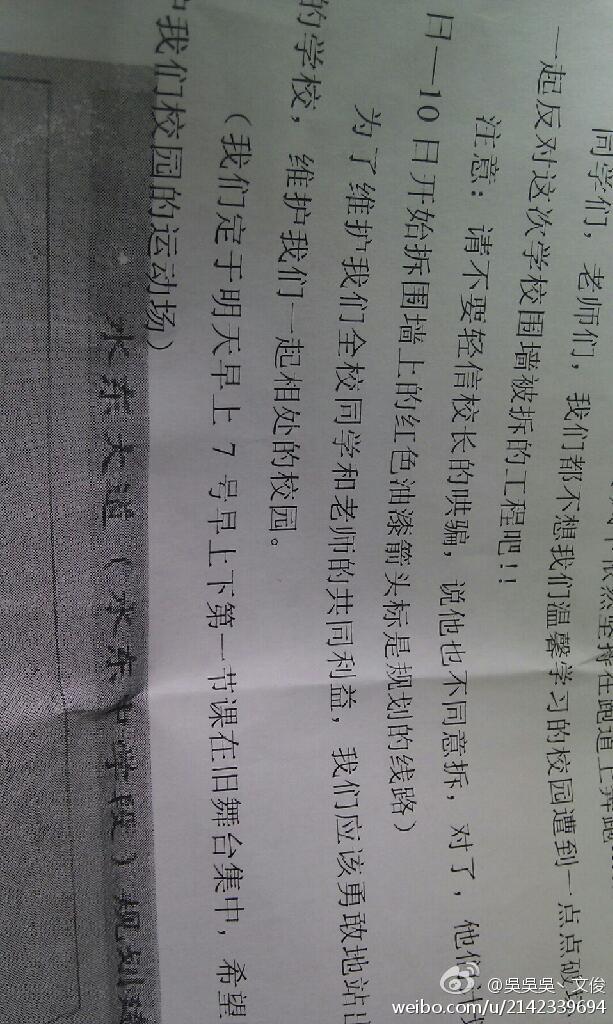 依然坚持在跑道上奔跑
同学们，老师们，我们都不想我们温馨学习的校园遭到一点点破
一起反对这次学校围墙被拆的工程吧!!
注意：请不要轻信校长的哄骗，说他也不同意拆，对了，他们计划
日—10日开始拆围墙上的红色油漆箭头标是规划的线路）
为了维护我们全校同学和老师的共同利益，我们应该勇敢地站出
的学校，维护我们一起相处的校园。
（我们定于明天早上7号早上下第一节课在旧舞台集中，希望
我们校园的运动场）
水东大道（水东中学段）规划
@吳吳吳丶文俊
weibo.com/u/2142339694